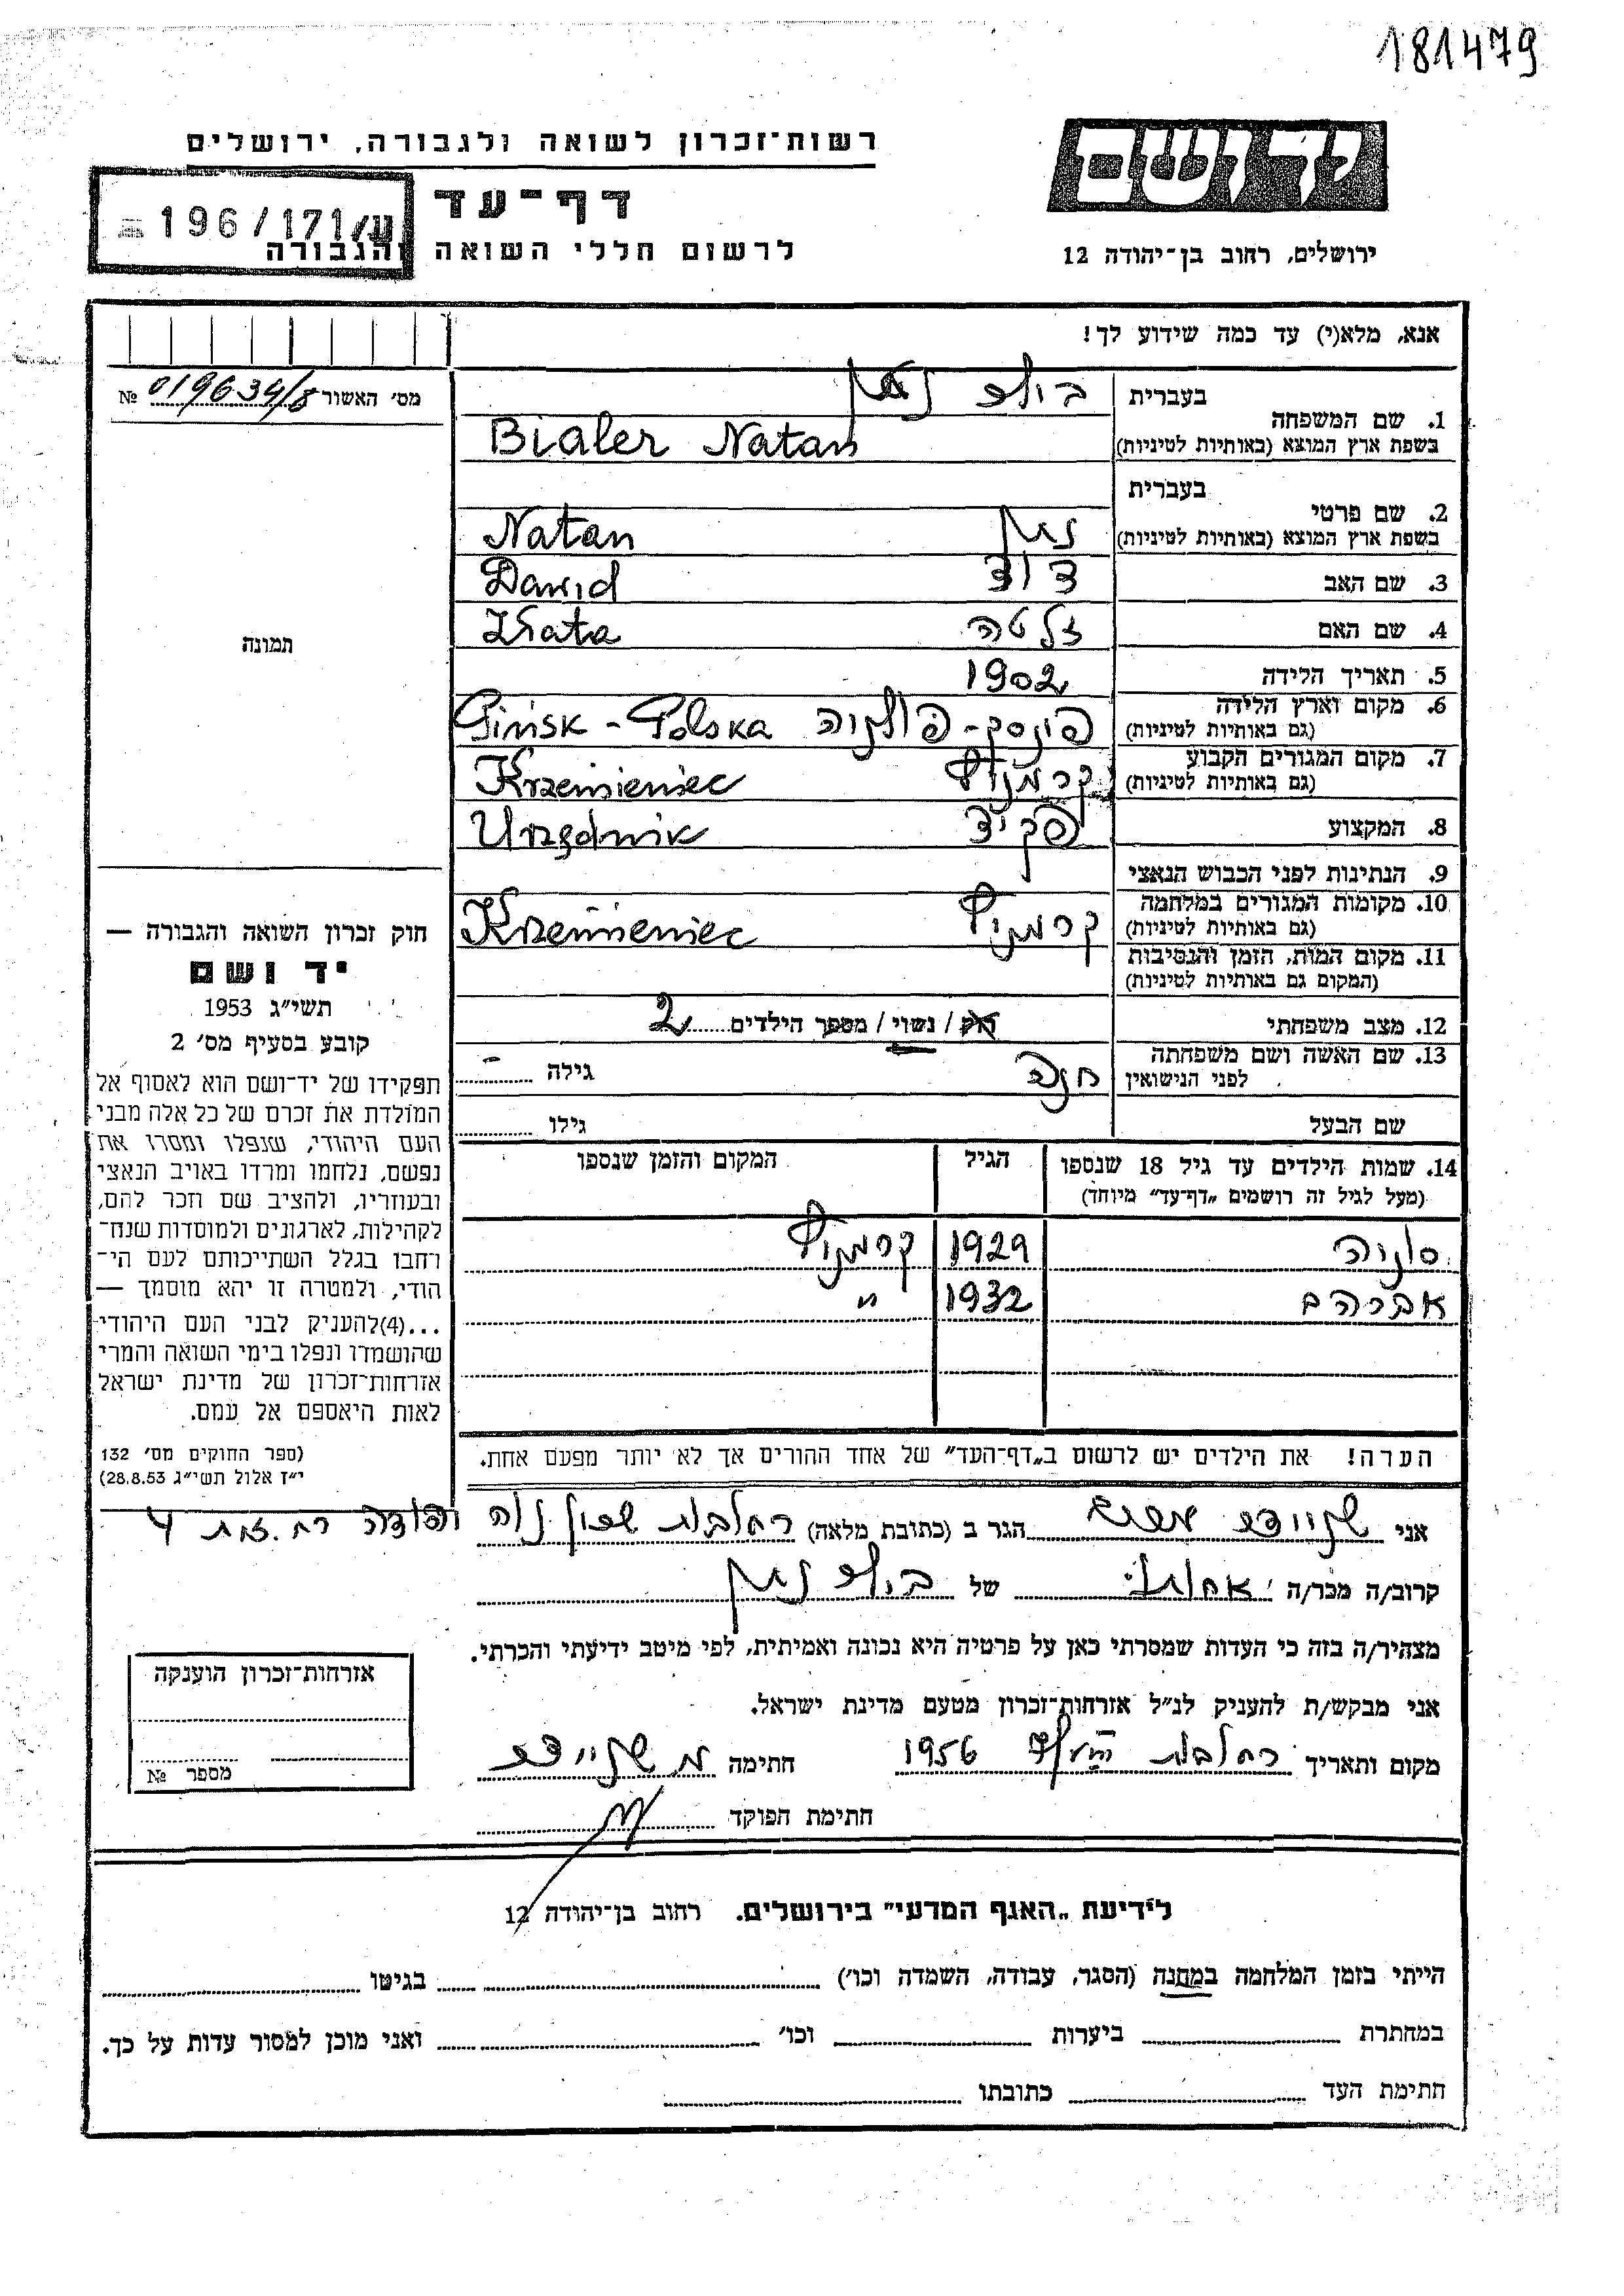 181479
יד ושם
ירושלים, רחוב בן־יהודה 12
רשות־זכרון לשואה ולגבורה, ירושלים
דף־עד
לרשום חללי השואה והגבורה
196/171/ע
אנא, מלא(י) עד כמה שידוע לך!
מס׳ האשור 019634/8 №
1. שם המשפחה
בעברית
בשפת ארץ המוצא (באותיות לטיניות)
Bialer Natan
2. שם פרטי
בעברית נתן
בשפת ארץ המוצא (באותיות לטיניות)
Natan
3. שם האב דוד Dawid
4. שם האם זלטה Zlata
5. תאריך הלידה 1902
6. מקום וארץ הלידה
(גם באותיות לטיניות)
פינסק - פולניה Pińsk - Polska
7. מקום המגורים הקבוע
(גם באותיות לטיניות)
קרמניץ Krzemieniec
8. המקצוע פקיד Urzędnik
9. הנתינות לפני הכבוש הנאצי
10. מקומות המגורים במלחמה
(גם באותיות לטיניות)
קרמניץ Krzemieniec
11. מקום המות, הזמן והנסיבות
(המקום גם באותיות לטיניות)
12. מצב משפחתי רוק / נשוי / מספר הילדים 2
13. שם האשה ושם משפחתה
לפני הנישואין
חנה גילה -
שם הבעל גילו
14. שמות הילדים עד גיל 18 שנספו
(מעל לגיל זה רושמים „דף־עד״ מיוחד)
הגיל
המקום והזמן שנספו
סוניה 1929 קרמניץ
אברהם 1932 "
הערה! את הילדים יש לרשום ב„דף־העד״ של אחד ההורים אך לא יותר מפעם אחת.
תמונה
חוק זכרון השואה והגבורה —
יד ושם
תשי״ג 1953
קובע בסעיף מס׳ 2
תפקידו של יד־ושם הוא לאסוף אל
המולדת את זכרם של כל אלה מבני
העם היהודי, שנפלו ומסרו את
נפשם, נלחמו ומרדו באויב הנאצי
ובעוזריו, ולהציב שם וזכר להם,
לקהילות, לארגונים ולמוסדות שנח־
רחבו בגלל השתייכותם לעם הי־
הודי, ולמטרה זו יהא מוסמך —
...(4)להעניק לבני העם היהודי
שהושמדו ונפלו בימי השואה והמרי
אזרחות־זכרון של מדינת ישראל
לאות היאספם אל עמם.
(ספר החוקים מס׳ 132
י״ז אלול תשי״ג 28.8.53)
אני שניידר הגר ב (כתובת מלאה) רחובות שכון נוה יהודה רח. 4
קרוב/ה מכר/ה אחותי של ביאלר נתן
מצהיר/ה בזה כי העדות שמסרתי כאן על פרטיה היא נכונה ואמיתית, לפי מיטב ידיעתי והכרתי.
אני מבקש/ת להעניק לנ״ל אזרחות־זכרון מטעם מדינת ישראל.
מקום ותאריך רחובות 1956 חתימה שניידר
חתימת הפוקד
אזרחות־זכרון הוענקה
מספר №
לידיעת „האגף המדעי״ בירושלים. רחוב בן־יהודה 12
הייתי בזמן המלחמה במחנה (הסגר, עבודה, השמדה וכו׳) בגיטו
במחתרת ביערות וכו׳ ואני מוכן למסור עדות על כך.
חתימת העד כתובתו